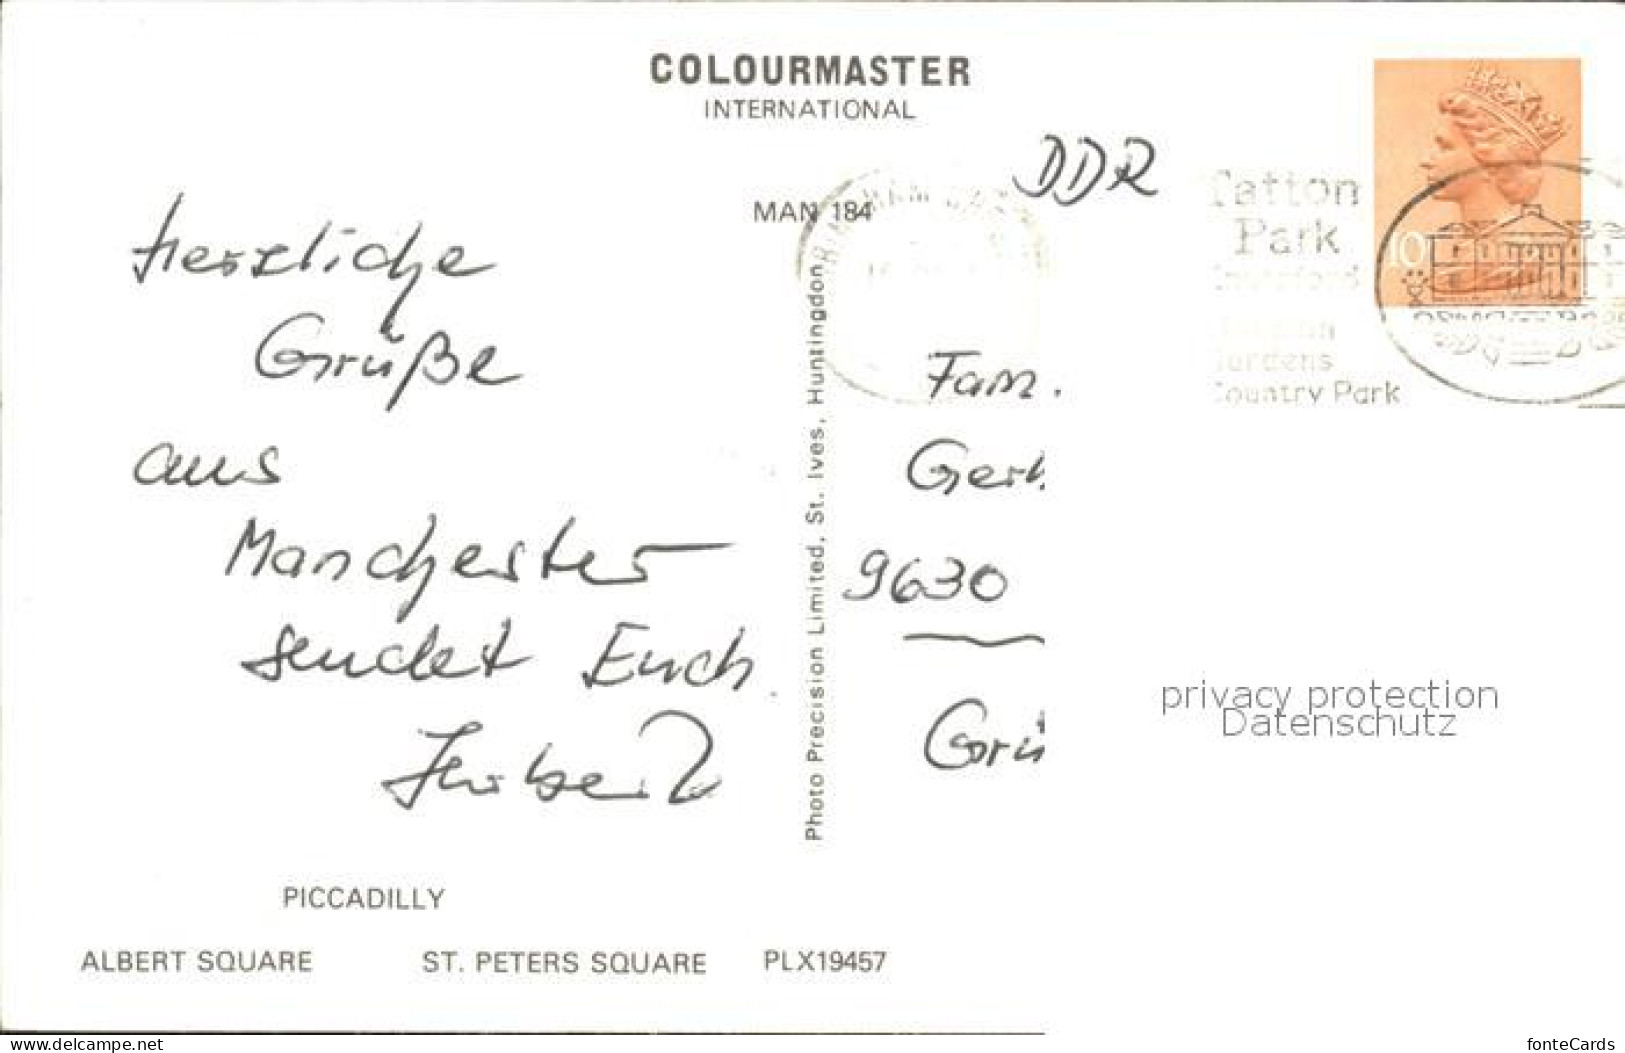 COLOURMASTER
INTERNATIONAL
DDR
MAN 184
Tatton
Park
Gardens
Country Park
10
Herzliche
Grüße
aus
Manchester
sendet Euch
Herbert
Photo Precision Limited, St. Ives, Huntingdon
Fam.
9630
privacy protection
Datenschutz
PICCADILLY
ALBERT SQUARE ST. PETERS SQUARE PLX19457
www.delcampe.net
fonteCards